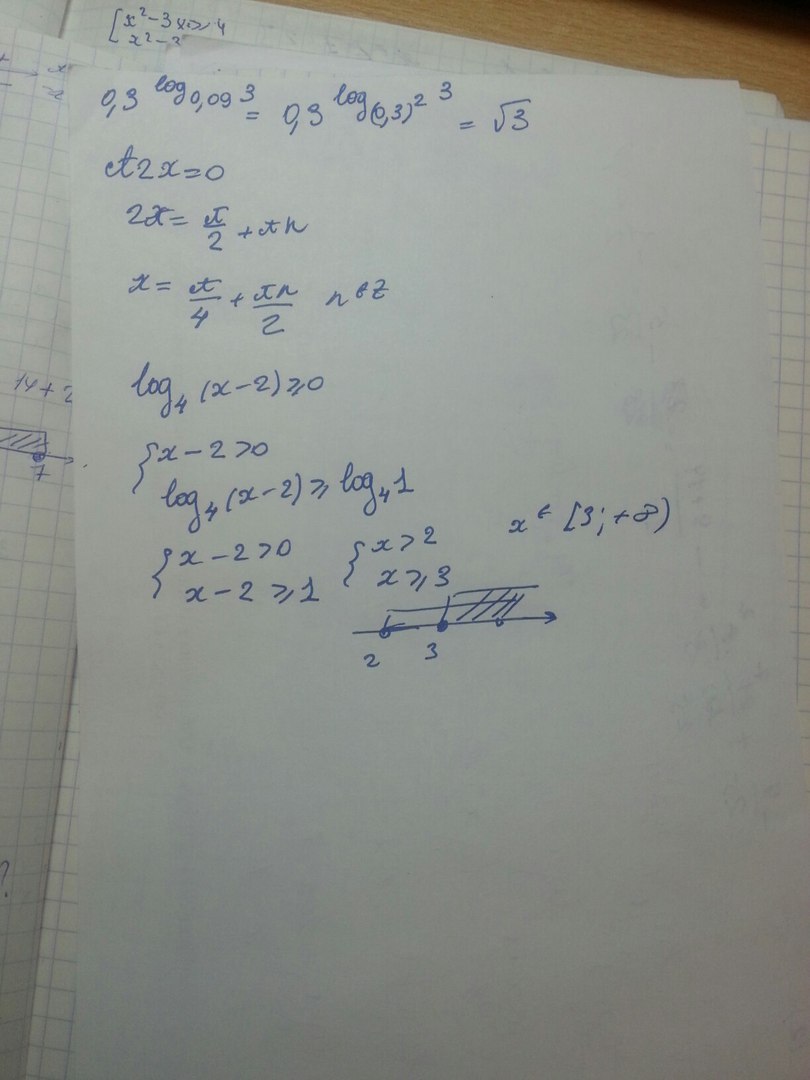 x² - 3x ≥ 4
x² - 3
0,3^log_0,09 3 = 0,3^log_(0,3)² 3 = √3
ct 2x = 0
2x = π/2 + πn
x = π/4 + πn/2 n ∈ Z
14 + 2
log₄ (x - 2) ≥ 0
7
{ x - 2 > 0
log₄ (x - 2) ≥ log₄ 1
{ x - 2 > 0
x - 2 ≥ 1
{ x > 2
x ≥ 3
x ∈ [3; +∞)
2 3
?